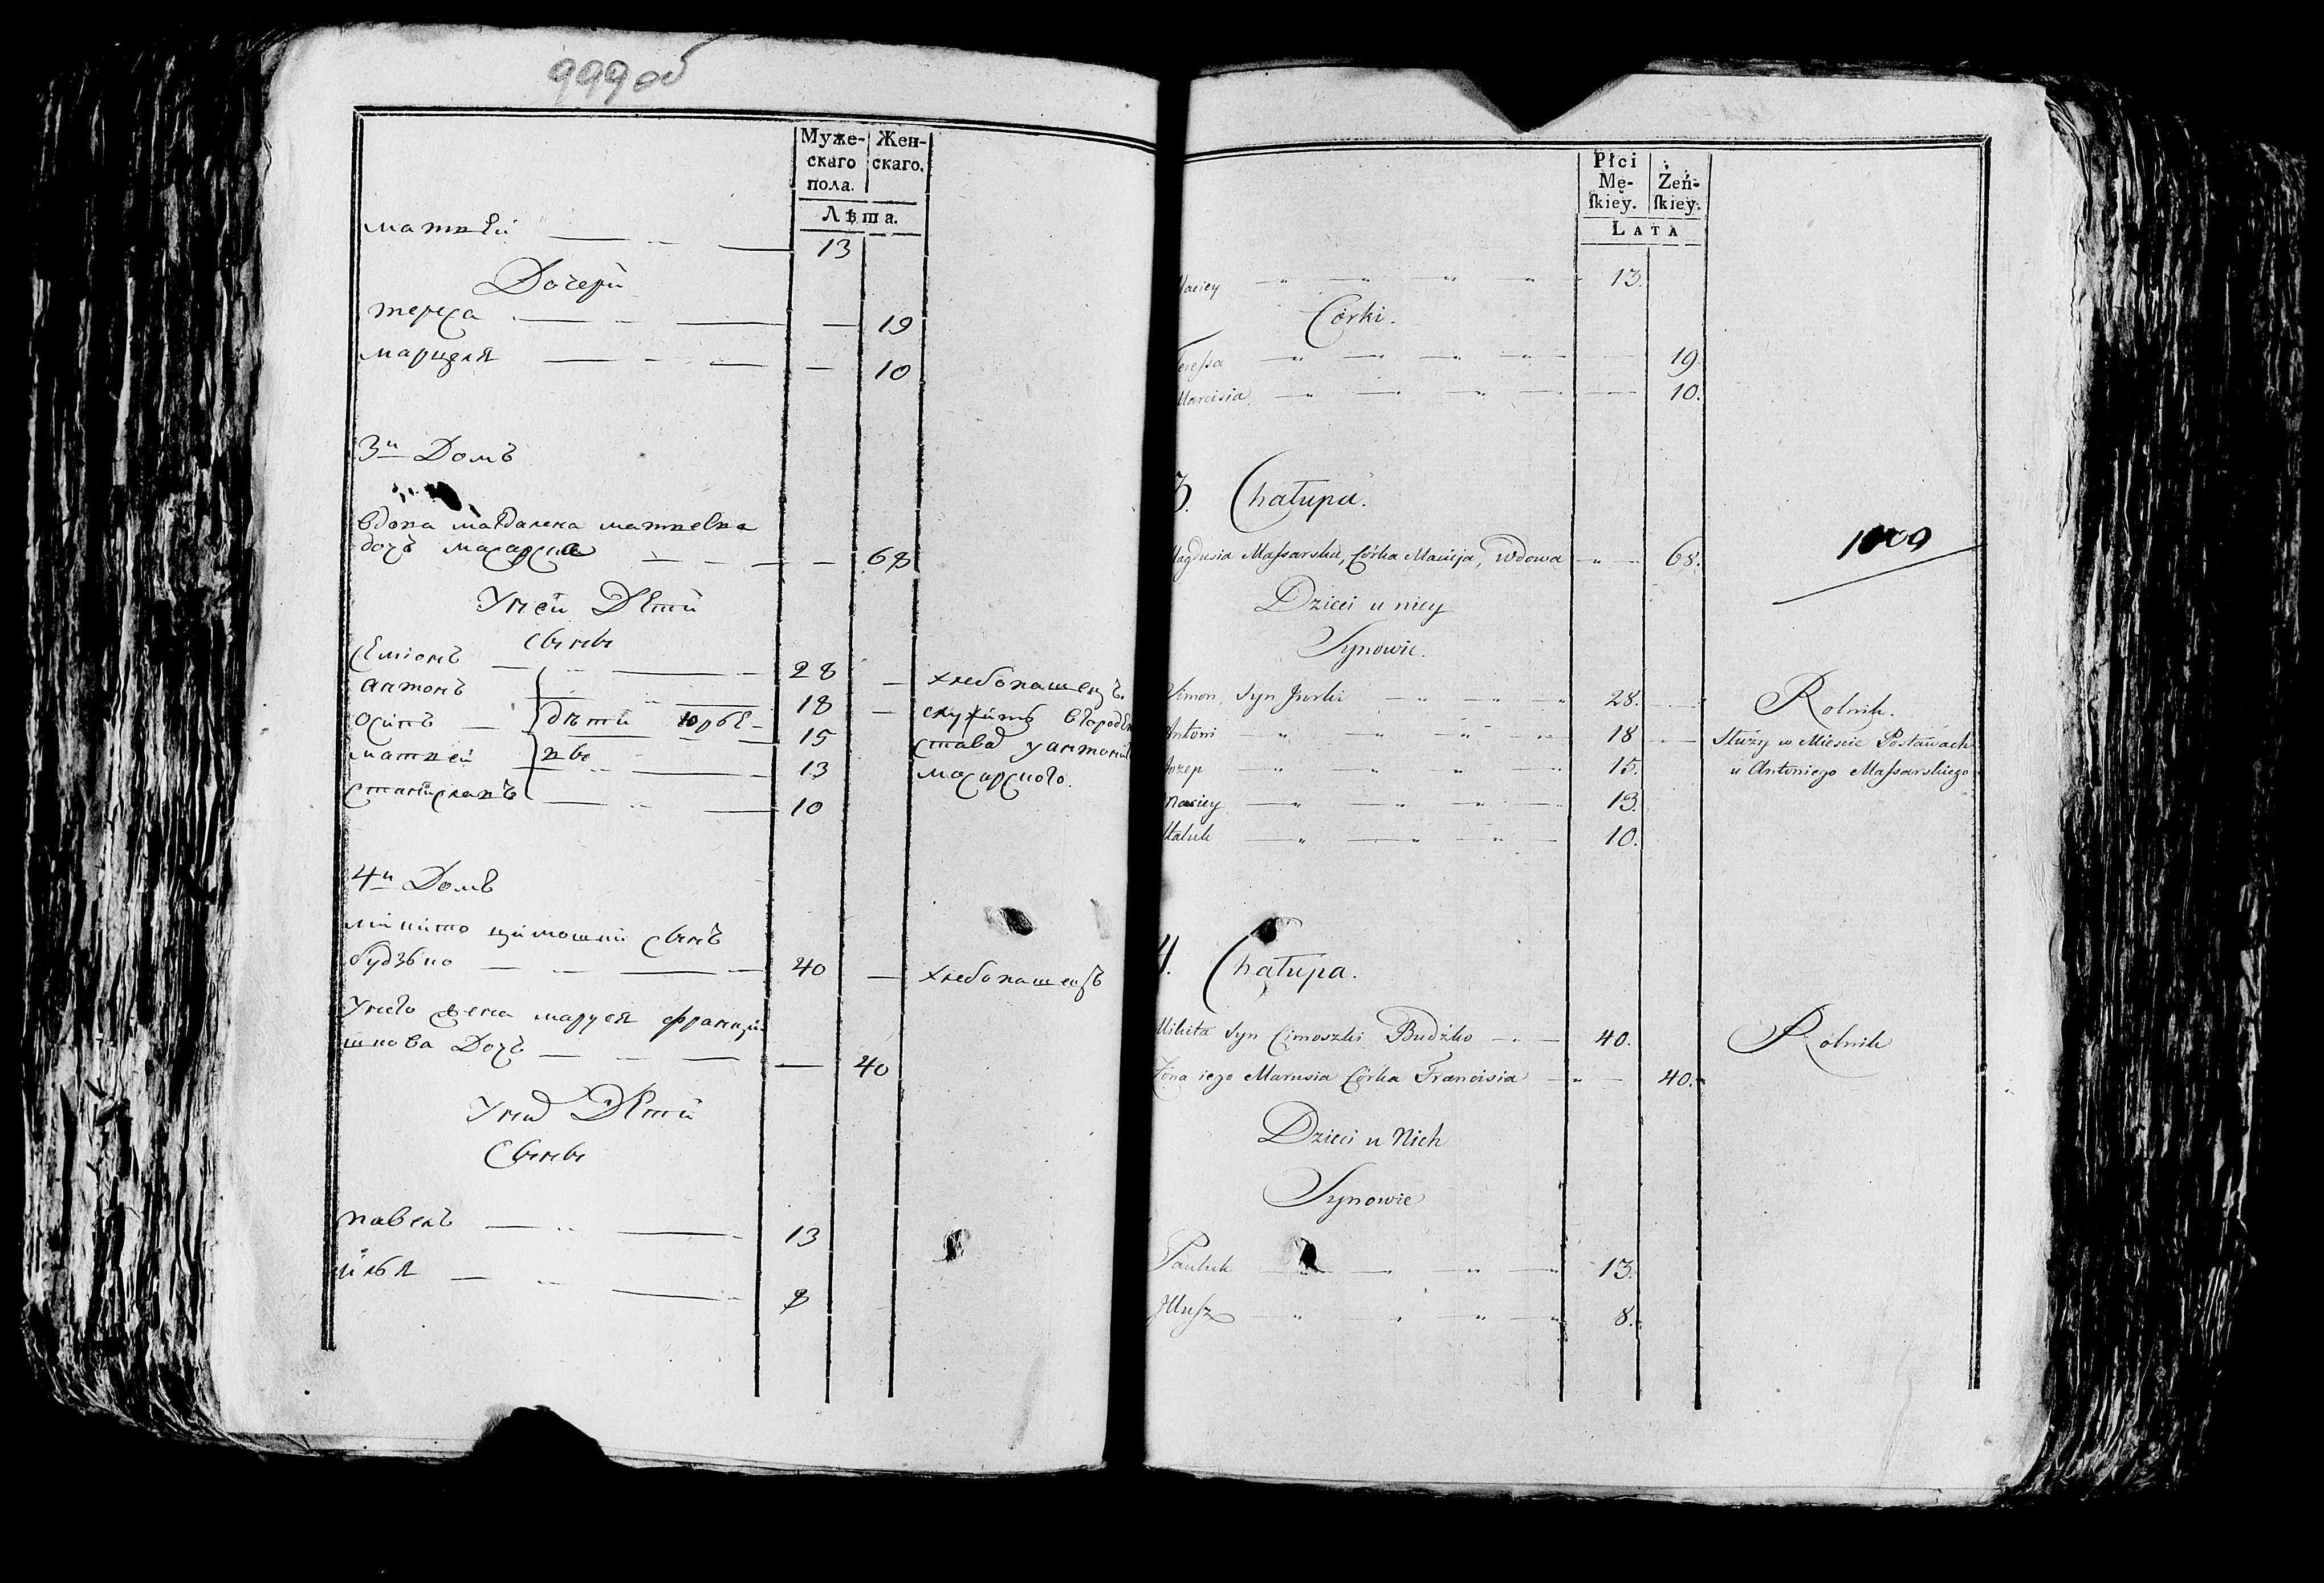 999 об
Муже-
скаго
пола.
Жен-
скаго.
Лѣта.
матвѣй 13
Дочери
тереса 19
марцеля 10
3й Домъ
вдова магдалена матвевна
дочъ масарска 68
У ней Дѣти
сыны
Семіонъ 28 хлебопашецъ.
антонъ 18 служитъ вгороде
осипъ дѣти юрье- 15 ставах у антонія
матвей вы 13 масарского.
станиславъ 10
4й Домъ
микито цимошки сынъ
будзько 40 хлебопашецъ
У него жена маруся францы
шкова Дочъ 40
У них Дѣти
Сыны
павелъ 13
илья 8
Płci
Mę-
ſkiey.
Żeń-
ſkiey.
LATA
Maciey 13.
Córki.
Teressa 19.
Marcisia 10.
3. Chałupa.
1000
Magdusia Massarska, Córka Macieja, Wdowa 68.
Dzieci u niey
Synowie.
Simon, Syn Jurki 28. Rolnik.
Antoni 18 Służy w Mieście Postawach
Jozep 15. u Antoniego Massarskiego
Maciey 13.
Staluk 10.
4. Chałupa.
Mikita Syn Cimoszki Budźko 40. Rolnik
Żona iego Marusia Córka Francisia 40.
Dzieci u Nich
Synowie
Pauluk 13.
Illusz 8.